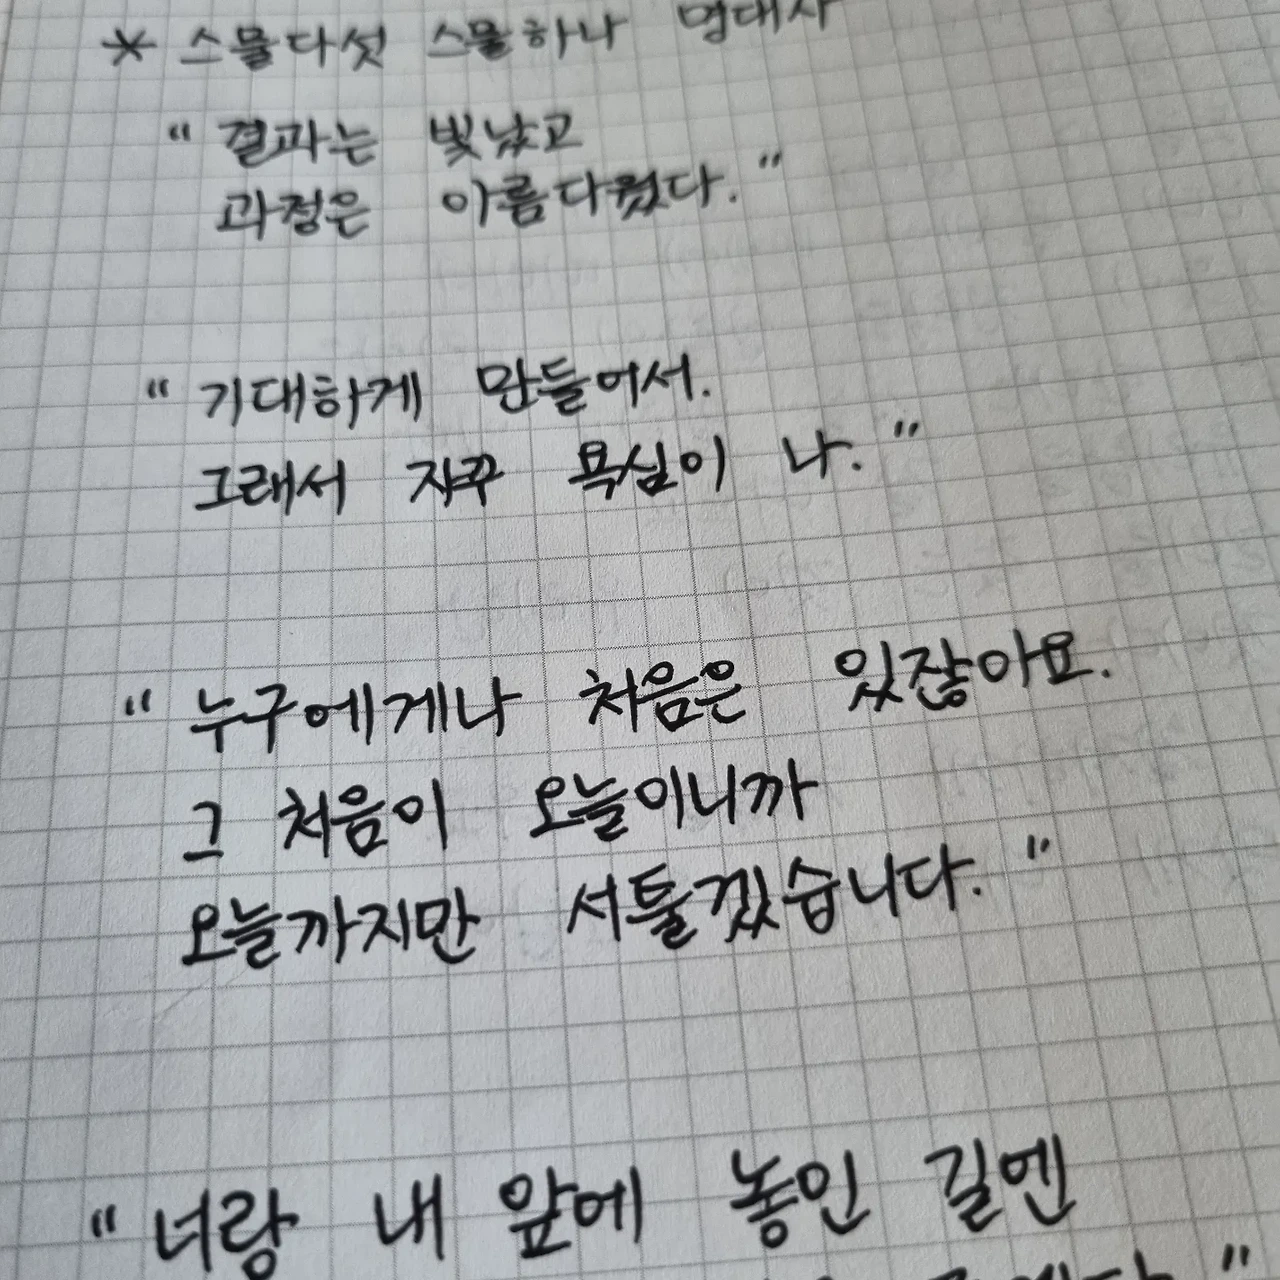 * 스물다섯 스물하나 명대사
"결과는 빛났고
과정은 아름다웠다."
"기대하게 만들어서.
그래서 자꾸 욕심이 나."
"누구에게나 처음은 있잖아요.
그 처음이 오늘이니까
오늘까지만 서툴겠습니다."
"너랑 내 앞에 놓인 길엔